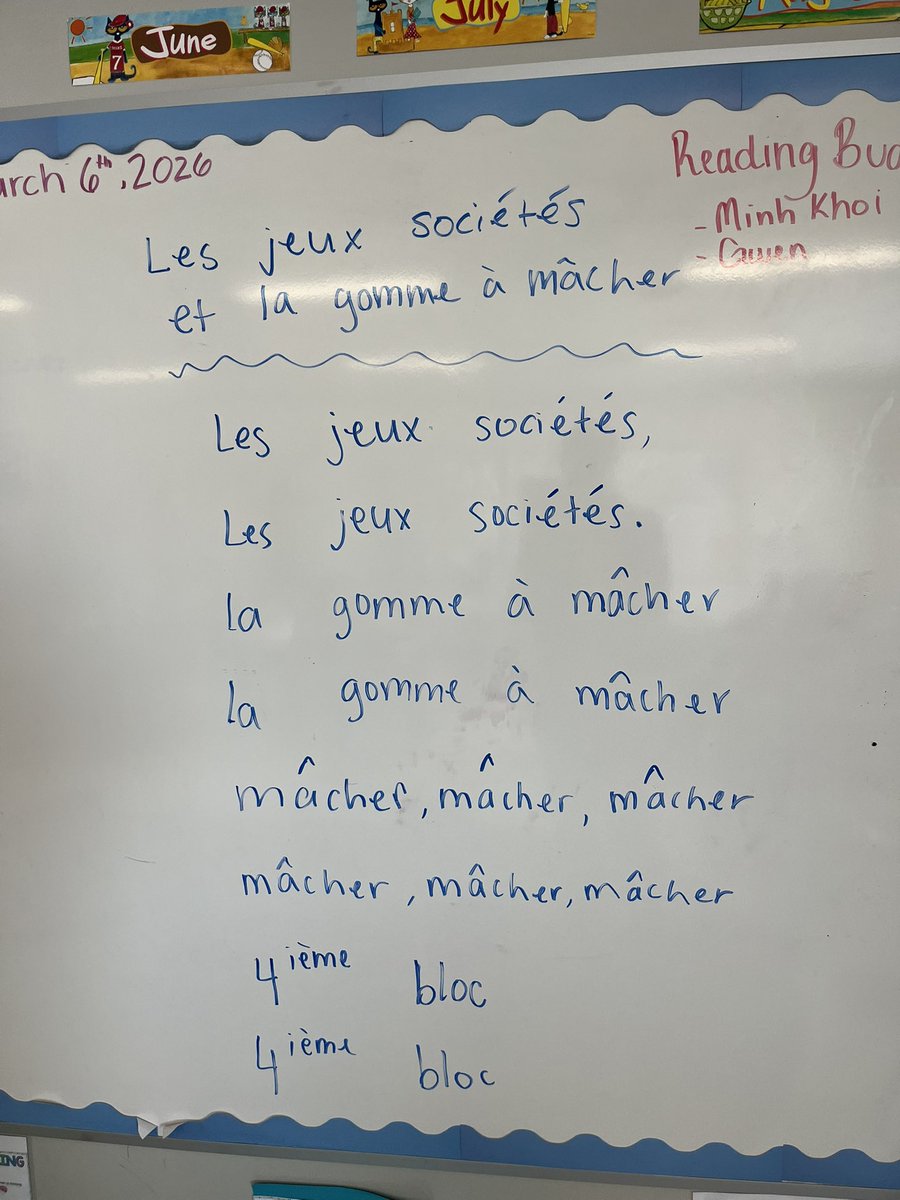 June
July
arch 6th, 2026
Reading Bud
- Minh Khoi
- Gwen
Les jeux sociétés
et la gomme à mâcher
Les jeux sociétés,
Les jeux sociétés.
la gomme à mâcher
la gomme à mâcher
mâcher, mâcher, mâcher
mâcher, mâcher, mâcher
4ième bloc
4ième bloc
ING